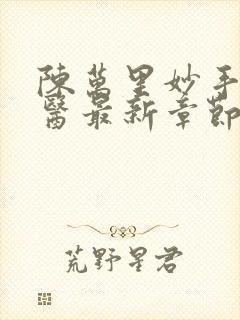 陳萬里妙手
醫最新章節
荒野星君